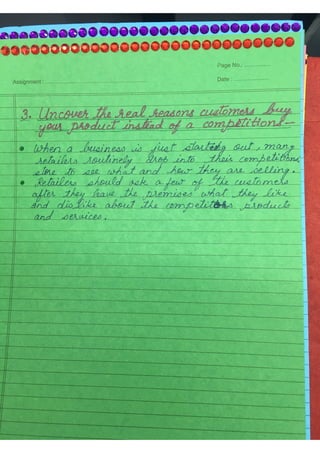 Page No.:
Assignment:
Date:
3. Uncover the real reasons customers buy
your product instead of a competitions-
• When a business is just starting out, many
retailers routinely drop into their competitions
store to see what and how they are selling.
• Retailers should ask a few of the customers
after they leave the premises what they like
and dislike about the competitors products
and services.